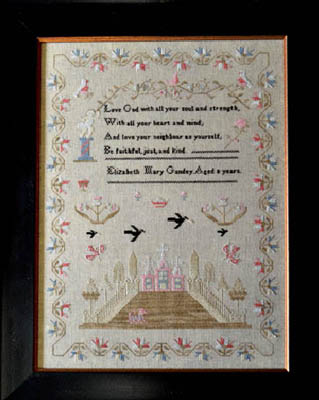 Love God with all your soul and strength,
With all your heart and mind;
And love your neighbour as yourself,
Be faithful, just, and kind.
Elizabeth Mary Gandey. Aged 8 years.